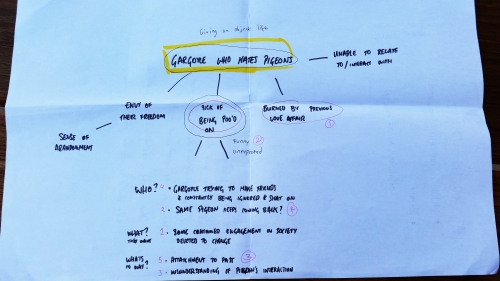 Giving an object life
GARGOYLE WHO HATES PIGEONS
UNABLE TO RELATE
TO / INTERACT WITH
ENVY OF
THEIR FREEDOM
SICK OF
BEING POO'D
ON
BURNED BY PREVIOUS
LOVE AFFAIR
1
SENSE OF
ABANDONMENT
Funny 2
unexpected
WHO? 4 • GARGOYLE TRYING TO MAKE FRIENDS
& CONSTANTLY BEING IGNORED & SHAT ON
2 • SAME PIGEON KEEPS COMING BACK? 4
WHAT?
THEY WANT
1 • SOME CONTINUED ENGAGEMENT IN SOCIETY
DEVOTED TO CHANGE
WHAT'S
IN WAY?
5 • ATTACHMENT TO PAST 3
3 • MISUNDERSTANDING OF PIGEON'S INTERACTION